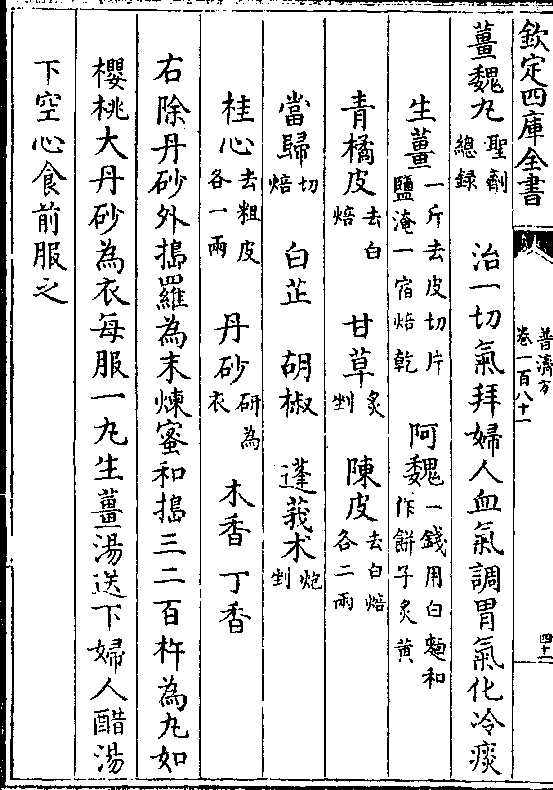 欽定四庫全書
普濟方
卷一百八十一
四十一
薑魏丸聖劑總録 治一切氣拜婦人血氣調胃氣化冷痰
生薑一斤去皮切片鹽淹一宿焙乾 阿魏一錢用白麵和作餅子炙黄
青橘皮去白焙 甘草炙剉 陳皮去白焙各二兩
當歸切焙 白芷 胡椒 蓬莪术炮剉
桂心去粗皮各一兩 丹砂研為衣 木香 丁香
右除丹砂外搗羅為末煉蜜和搗三二百杵為丸如
櫻桃大丹砂為衣每服一丸生薑湯送下婦人醋湯
下空心食前服之